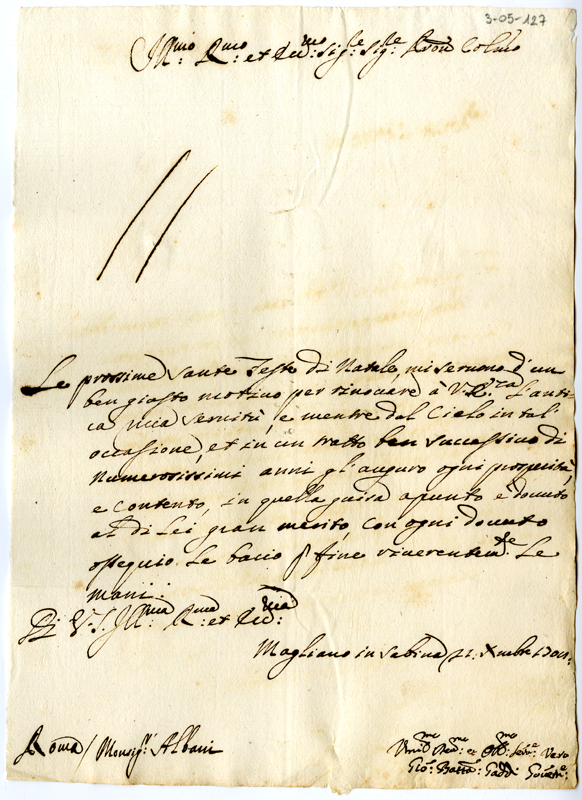 3-05-127
Ill:mo R:mo et Sig:re Sig:re Pron Col:mo
Le prossime Sante Feste di Natale, mi seruono d'un
ben giusto motiuo per rinouare à V.S. l'anti-
ca mia seruitù, e mentre dal Cielo in tal
occasione, et in un tratto ben successiuo di
Numerosissimi anni gl'auguro ogni prosperità,
e contento, in quella guisa apunto è douuto
al di Lei gran merito, con ogni douuto
ossequio Le bacio p fine riuerentem:te Le
mani:
Di V.S. Ill:ma R:ma et
Magliano in Sabina 21: Xmbre
Roma / Monsig:r Albani
Um:o Deu:mo et Obl:mo Seru:re Vero
Gio: Batta: Gaddi Gouern:e